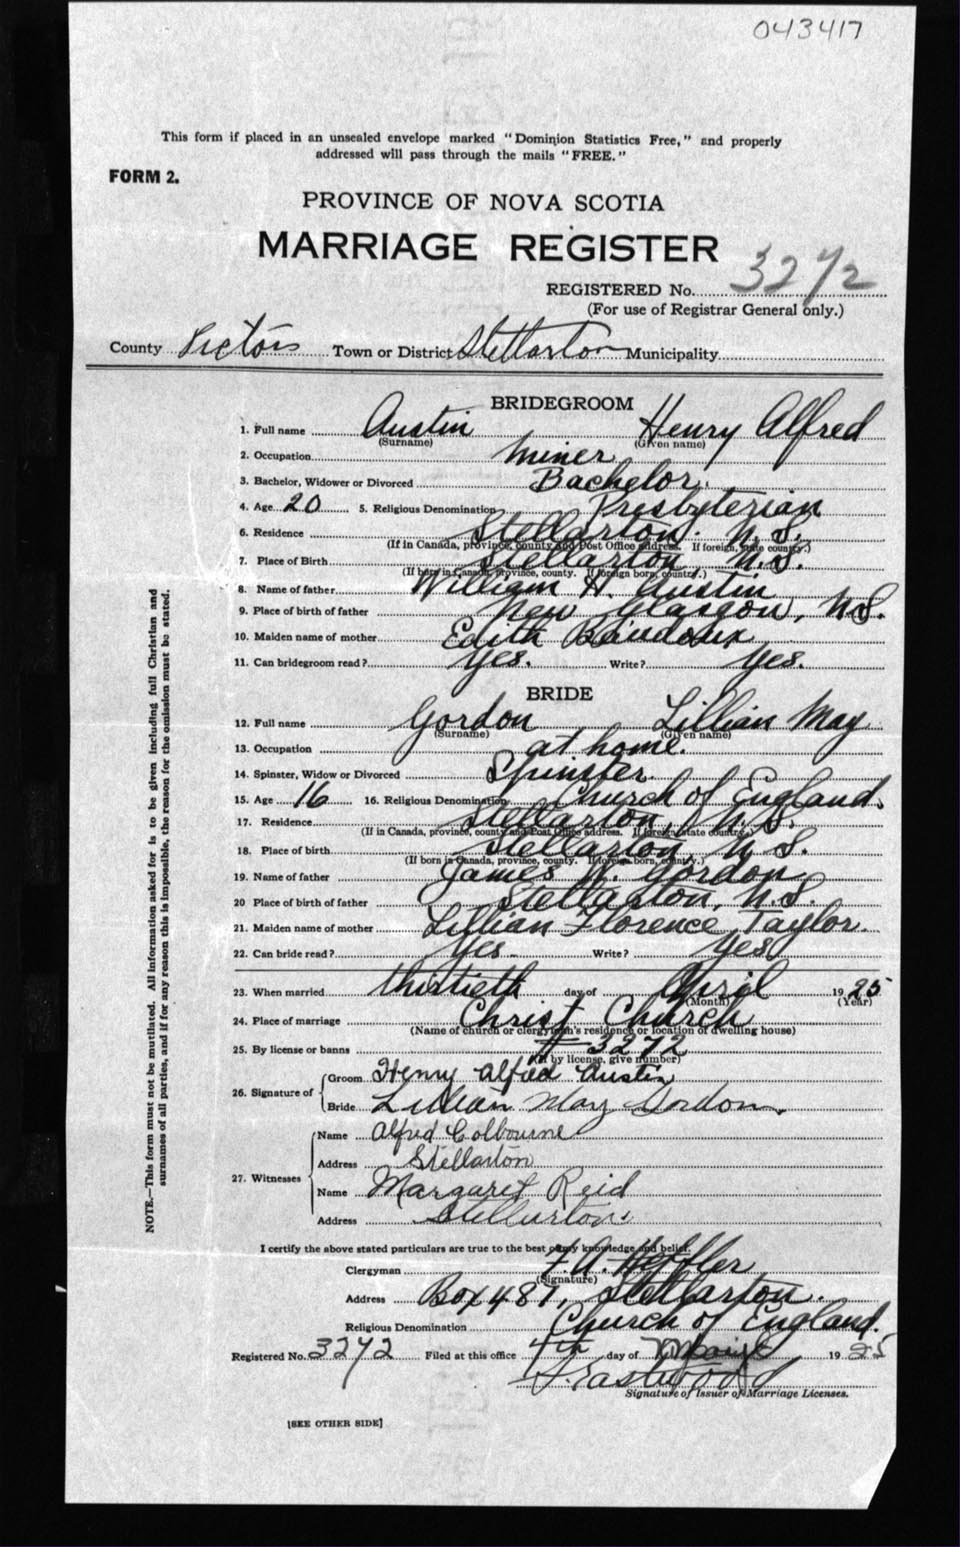 043417
This form if placed in an unsealed envelope marked "Dominion Statistics Free," and properly
addressed will pass through the mails "FREE."
FORM 2.
PROVINCE OF NOVA SCOTIA
MARRIAGE REGISTER
REGISTERED No. 3272
(For use of Registrar General only.)
County Pictou Town or District Stellarton Municipality
BRIDEGROOM
1. Full name Austin Henry Alfred
(Surname) (Given name)
2. Occupation Miner
3. Bachelor, Widower or Divorced Bachelor.
4. Age 20 5. Religious Denomination Presbyterian
6. Residence Stellarton. N.S.
(If in Canada, province, county and Post Office address. If foreign, state country.)
7. Place of Birth Stellarton, N.S.
(If born in Canada, province, county. If foreign born, country.)
8. Name of father William H. Austin
9. Place of birth of father New Glasgow, N.S.
10. Maiden name of mother Edith
11. Can bridegroom read? Yes. Write? Yes.
BRIDE
12. Full name Gordon Lillian May
(Surname) (Given name)
13. Occupation at home.
14. Spinster, Widow or Divorced Spinster.
15. Age 16 16. Religious Denomination Church of England.
17. Residence Stellarton, N.S.
(If in Canada, province, county and Post Office address. If foreign state country.)
18. Place of birth Stellarton N.S.
(If born in Canada, province, county. If foreign born, country.)
19. Name of father James W. Gordon
20 Place of birth of father Stellarton, N.S.
21. Maiden name of mother Lillian Florence Taylor.
22. Can bride read? Yes. Write? Yes
23. When married thirtieth day of April 1925
(Month) (Year)
24. Place of marriage Christ Church
(Name of church or clergyman's residence or location of dwelling house)
25. By license or banns # 3272
(If by license, give number)
26. Signature of Groom Henry Alfred Austin
Bride Lillian May Gordon.
27. Witnesses Name Alfred Colbourne
Address Stellarton
Name Margaret Reid
Address Stellarton
I certify the above stated particulars are true to the best of my knowledge and belief.
Clergyman F.A. Heffler
(Signature)
Address Box 487, Stellarton.
Religious Denomination Church of England.
Registered No. 3272 Filed at this office 4th day of 1925
Eastwood
Signature of Issuer of Marriage Licenses.
[SEE OTHER SIDE]
NOTE.—This form must not be mutilated. All information asked for is to be given including full Christian and
surnames of all parties, and if for any reason this is impossible, the reason for the omission must be stated.